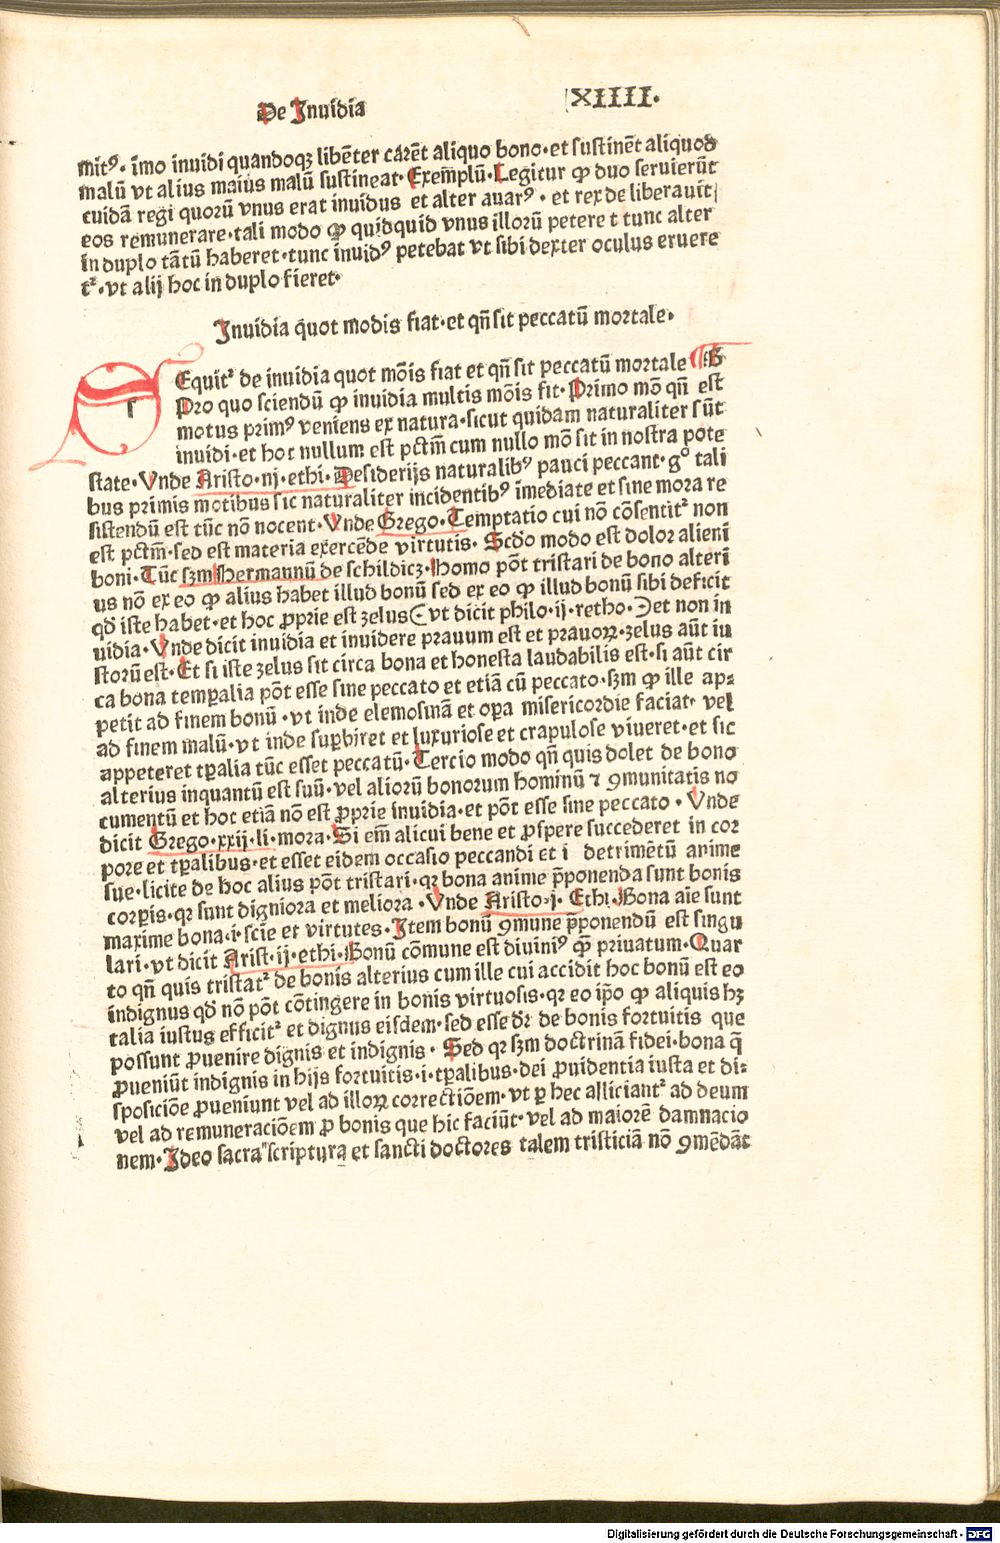 De Inuidia
XIIII.
mitꝰ. imo inuidi quandoqꝫ libēter carēt aliquo bono. et sustinēt aliquod
malū vt alius maius malū sustineat. Exemplū. Legitur ꝙ duo seruierūt
cuidā regi quorū vnus erat inuidus et alter auarꝰ. et rex deliberauit
eos remunerare. tali modo ꝙ quidquid vnus illorū petere t tunc alter
in duplo tātū haberet. tunc inuidꝰ petebat vt sibi dexter oculus eruere
tᷣ. vt alij hoc in duplo fieret.
Inuidia quot modis fiat. et qn̄ sit peccatū mortale.
SEquitᷣ de inuidia quot mōis fiat et qn̄ sit peccatū mortale
Pro quo sciendū ꝙ inuidia multis mōis fit. Primo mō qn̄ est
motus primꝰ veniens ex natura. sicut quidam naturaliter sūt
inuidi. et hoc nullum est pctm̄ cum nullo mō sit in nostra pote
state. Vnde Aristo. nj. ethi. Desiderijs naturalibꝰ pauci peccant. gº tali
bus primis motibus sic naturaliter incidentibꝰ īmediate et sine mora re
sistendū est tūc nō nocent. Vnde Grego. Temptatio cui nō cōsentitᷣ non
est pctm̄. sed est materia exercēde virtutis. Scdo modo est dolor alieni
boni. Tūc ẜꝫm Hermannū de schildicz. Homo pōt tristari de bono alteri
us nō ex eo ꝙ alius habet illud bonū sed ex eo ꝙ illud bonū sibi deficit
qd̄ iste habet. et hoc ꝓprie est zelus (vt dicit philo. ij. retho.) et non in
uidia. Vnde dicit inuidia et inuidere prauum est et prauoꝝ. zelus aūt iu
storū est. Et si iste zelus sit circa bona et honesta laudabilis est. si aūt cir
ca bona temꝑalia pōt esse sine peccato et etiā cū peccato. ẜꝫm ꝙ ille ap⸗
petit ad finem bonū. vt inde elemosinā et oꝑa misericordie faciat. vel
ad finem malū. vt inde suꝑbiret et luxuriose et crapulose viueret. et sic
appeteret tꝑalia tūc esset peccatū. Tercio modo qn̄ quis dolet de bono
alterius inquantū est suū. vel aliorū bonorum hominū ⁊ ꝯmunitatis no
cumentū et hoc etiā nō est ꝓprie inuidia. et pōt esse sine peccato. Vnde
dicit Grego. xxij. li. mora. Si em̄ alicui bene et ꝓspere succederet in cor
pore et tꝑalibus. et esset eidem occasio peccandi et i detrimētū anime
sue. licite de hoc alius pōt tristari. qꝛ bona anime p̄ponenda sunt bonis
corꝑis. qꝛ sunt digniora et meliora. Vnde Aristo. j. Ethi. Bona aīe sunt
maxime bona. i. scie et virtutes. Item bonū ꝯmune p̄ponendū est singu
lari. vt dicit Arist. ij. ethi. Bonū cōmune est diuiniꝰ ꝙ̄ priuatum. Quar
to qn̄ quis tristatᷣ de bonis alterius cum ille cui accidit hoc bonū est eo
indignus qd̄ nō pōt cōtingere in bonis virtuosis. qꝛ eo ip̄o ꝙ aliquis hꝫ
talia iustus efficitᷣ et dignus eisdem. sed esse dꝛ̄ de bonis fortuitis que
possunt ꝓuenire dignis et indignis. Sed qꝛ ẜꝫm doctrinā fidei. bona q̄
ꝓueniūt indignis in hijs fortuitis. i. tꝑalibus. dei ꝓuidentia iusta et di⸗
sposiciōe ꝓueniunt vel ad illoꝝ correctiōem. vt ꝑ hec alliciantᷣ ad deum
vel ad remuneraciōem ꝓ bonis que hic faciūt. vel ad maiorē damnacio
nem. Ideo sacra scriptura et sancti doctores talem tristiciā nō ꝯmēdāt
Digitalisierung gefördert durch die Deutsche Forschungsgemeinschaft - DFG